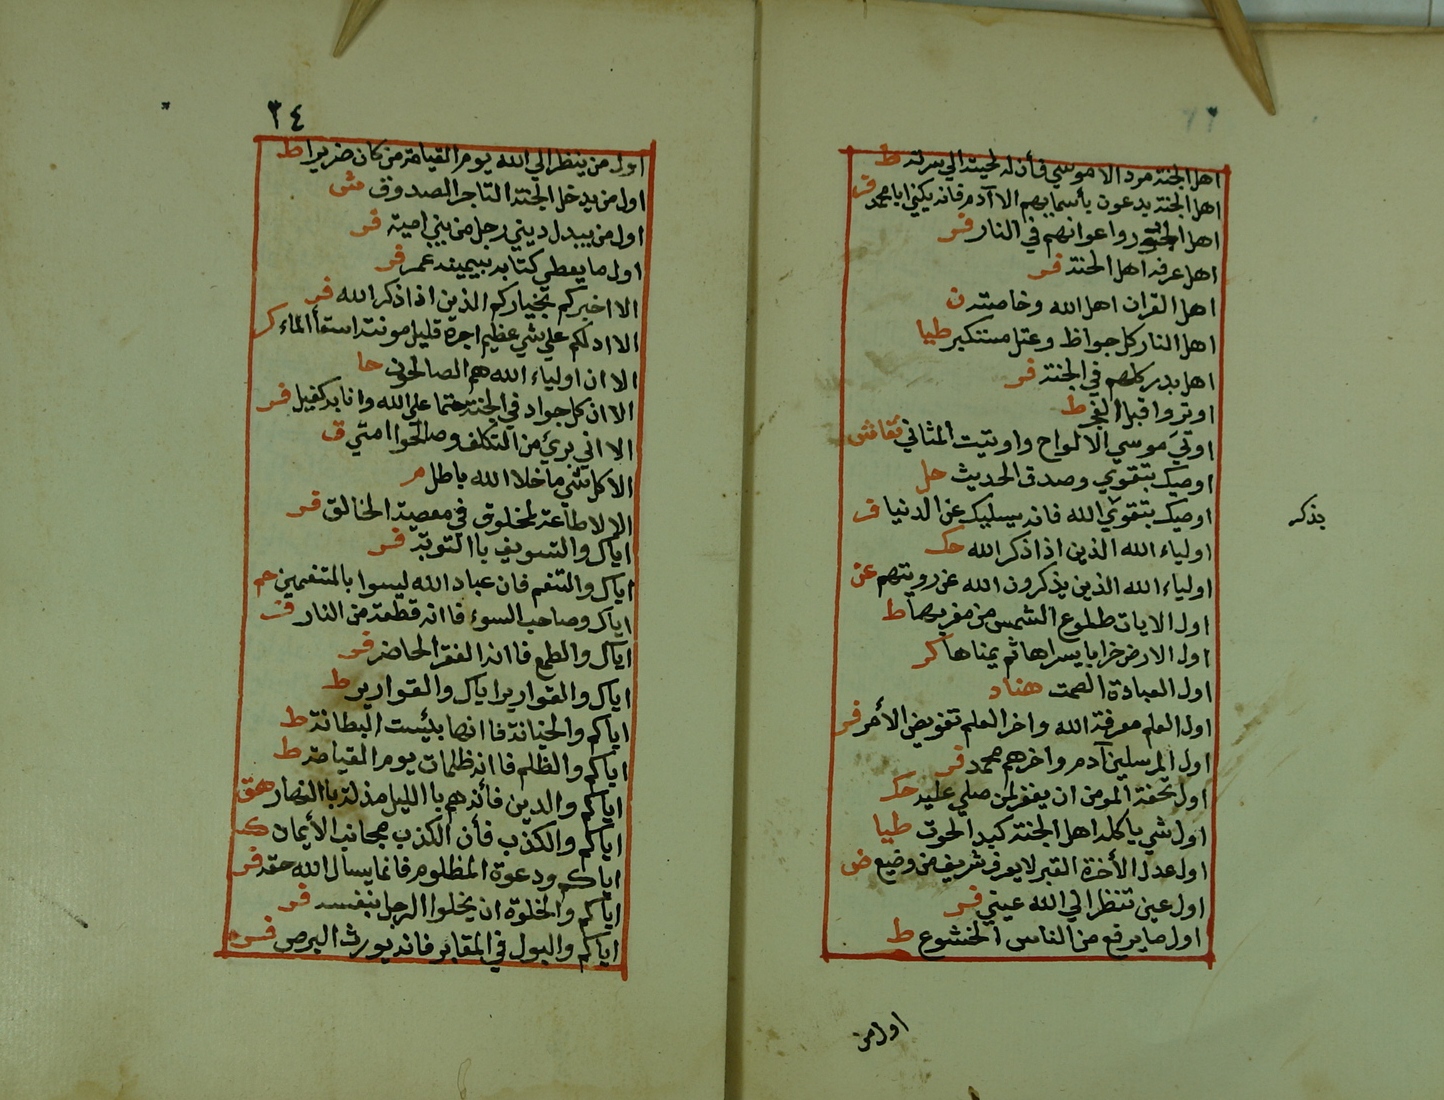 اهل الجنة مرد الا موسي فأن له لحية الي سرته ط
اهل الجنة يدعون بأسمايهم الا آدم فانه يكني ابا محمد فر
اهل واعوانهم في النار فر
اهل عرفه اهل الجنة فر
اهل القران اهل الله وخاصته ن
اهل النار كل جواظ وعتل مستكبر طيا
اهل بدر كلهم في الجنة فر
اوتروا قبل الفجر ط
اوتي موسي الالواح واوتيت المثاني نقاش
اوصيك بتقوي وصدق الحديث حل
اوصيك بتقوي الله فانه يسليك عن الدنيا ف
جذكر
اولياء الله الذين اذا ذكر الله حك
اولياء الله الذين يذكرون الله عن رويتهم عن
اول الايات طلوع الشمس من مغربها ط
اول الارض خرابا يسراها ثم يمناها كر
اول العبادة الصمت هناد
اول العلم معرفة الله واخر العلم تفويض الأمر فر
اول المرسلين آدم واخرهم محمد فر
اول تحفة المومن ان يغفر لمن صلي عليه حك
اول شي ياكله اهل الجنة كبد الحوت طيا
اول عدل الأخرة القبر لا يعرف شريف من وضيع ض
اول عين تنظر الي الله عيني فر
اول ما يرفع من الناس الخشوع ط
اول من
٣٤
اول من ينظر الي الله يوم القيامة من كان ضريرا ط
اول من يدخل الجنة التاجر الصدوق مش
اول من يبدل ديني رجل من بني امية فر
اول ما يعطي كتابه بيمينه عمر فر
الا اخبركم بخياركم الذين اذا ذكر الله فر
الا ادلكم علي شي عظيم اجرة قليل مونته استقأ الماء كر
الا ان اولياء الله هم الصالحون حا
الا ان كل جواد في الجنة حتما علي الله وانا به كفيل فر
الا اني بريء من التكلف وصالحوا امتي ق
الا كل شي ما خلا الله باطل م
الا لا طاعة لمخلوق في معصية الخالق فر
اياك والتسويف باالتوبة فر
اياك والتنعم فان عباد الله ليسوا بالمتنعمين حم
اياك وصاحب السوء فاانه قطعة من النار ف
اياك والطمع فاانه الفقر الحاضر فر
اياك والقوارير اياك والقوارير ط
اياكم والخيانة فاانها بئيست البطانة ط
اياكم والظلم فاانه ظلمات يوم القيامة ط
اياكم والدين فأنه هم باالليل مذلة باالنهار هق
اياكم والكذب فأن الكذب مجانب الأيمان ك
اياكم ودعوة المظلوم فانما يسال الله حقه فر
اياكم والخلوة ان يخلوا الرجل بنفسه فر
اياكم والبول في المقابر فانه يورث البرص فر